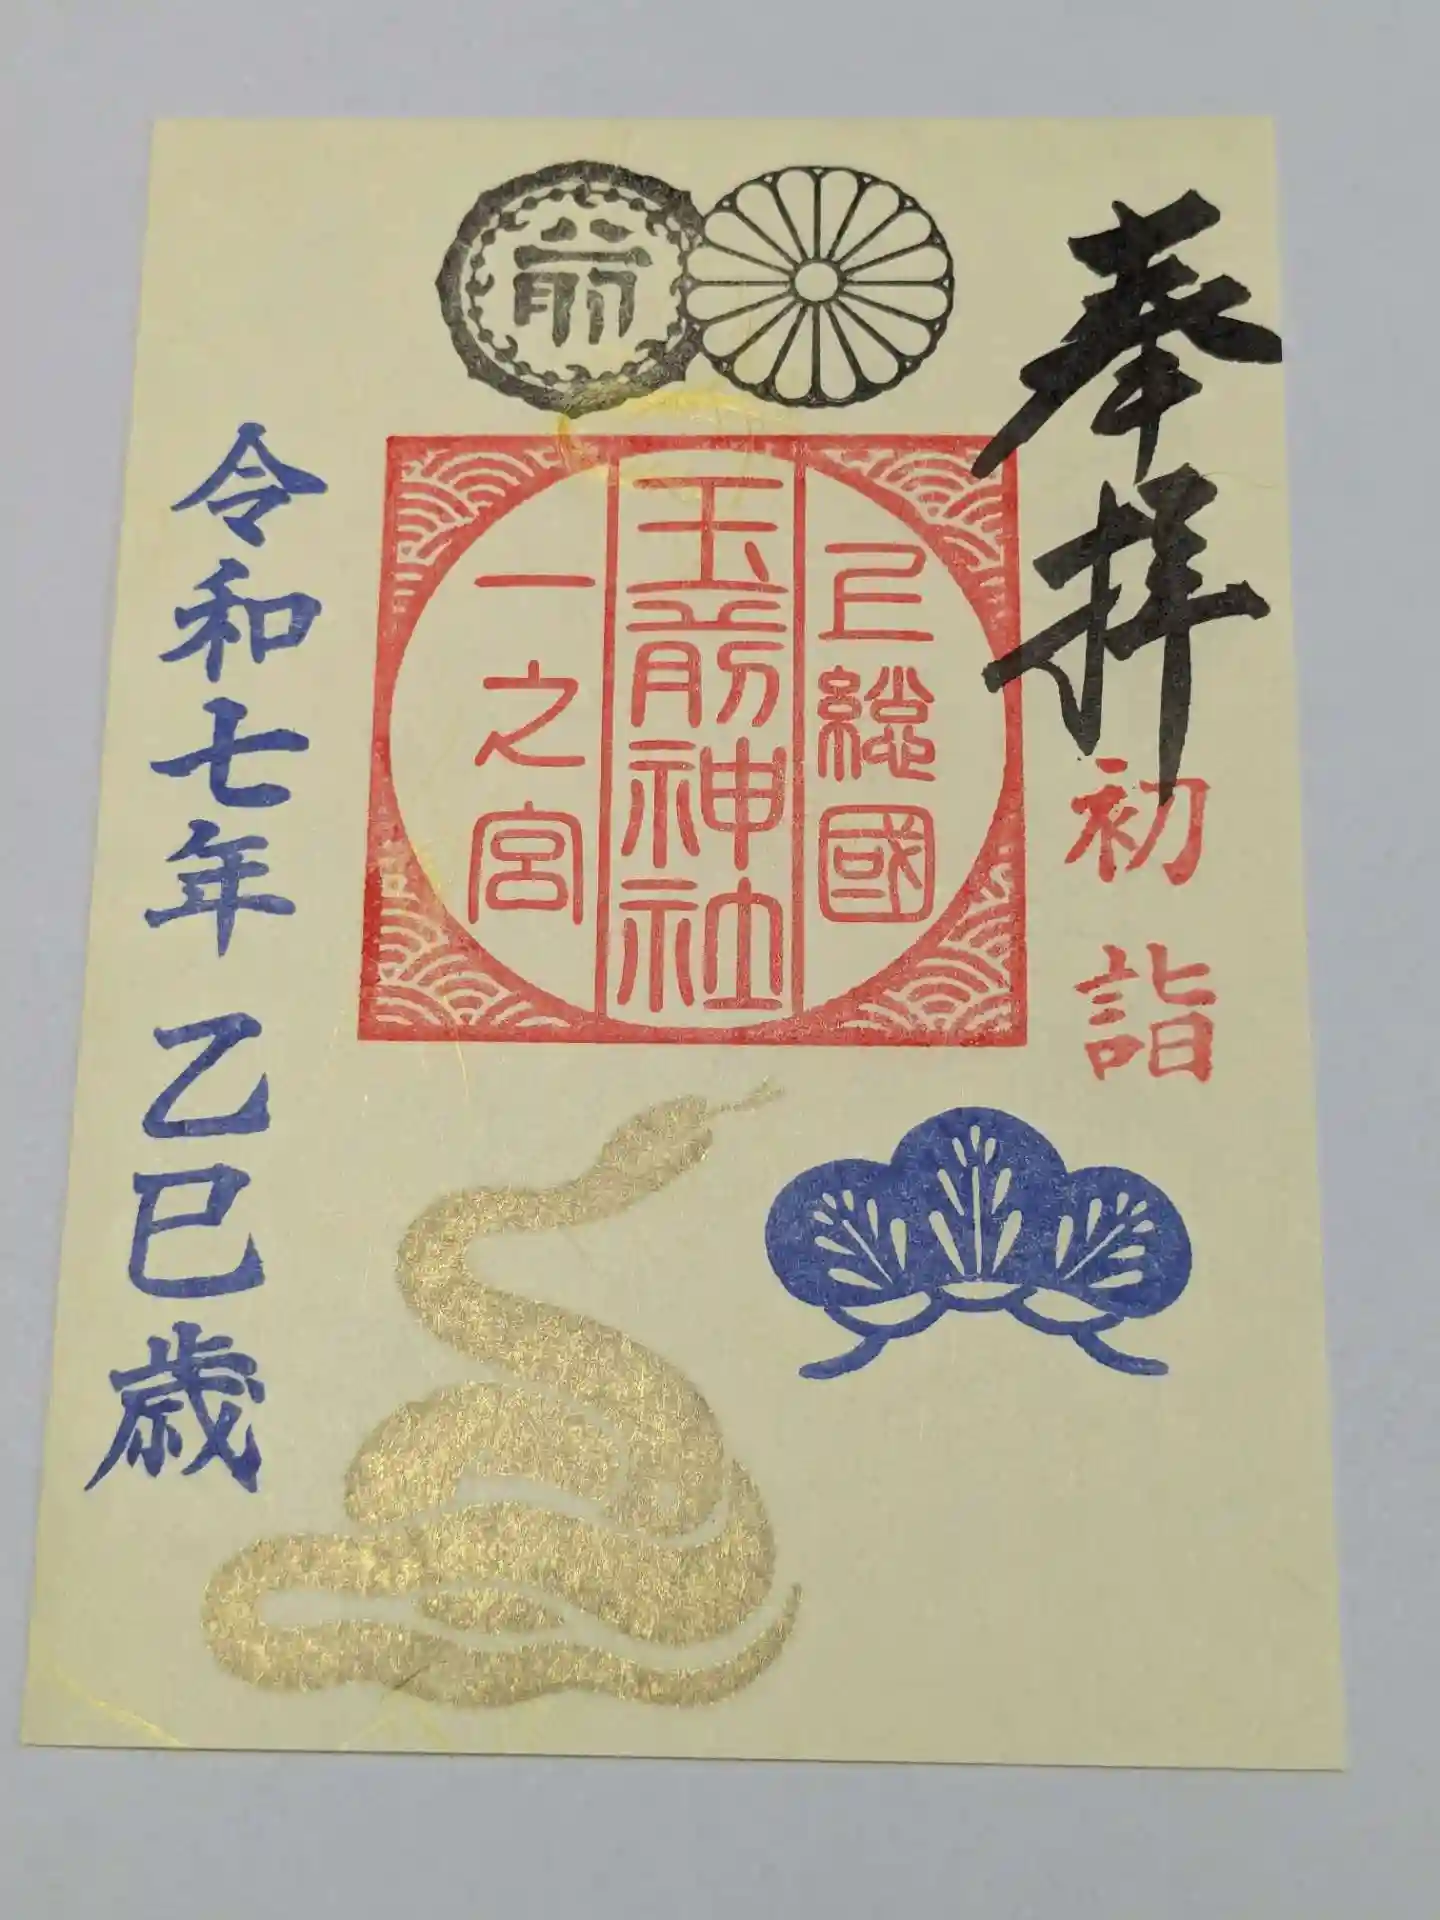 奉拝
初詣
上総國
玉前神社
一之宮
前
令和七年 乙巳歳